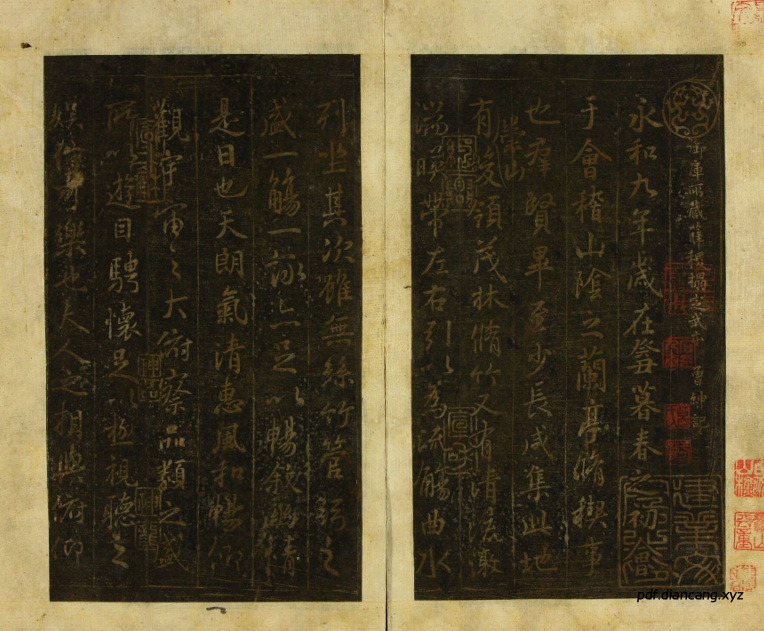 御庫所藏薛稷定武曹紳記
永和九年歲在癸丑暮春之初會
于會稽山陰之蘭亭脩禊事
也群賢畢至少長咸集此地
有崇山峻領茂林脩竹又有清流激
湍暎帶左右引以為流觴曲水
列坐其次雖無絲竹管弦之
盛一觴一詠亦足以暢敘幽情
是日也天朗氣清惠風和暢仰
觀宇宙之大俯察品類之盛
所以遊目騁懷足以極視聽之
娛信可樂也夫人之相與俯仰
pdf.diancang.xyz